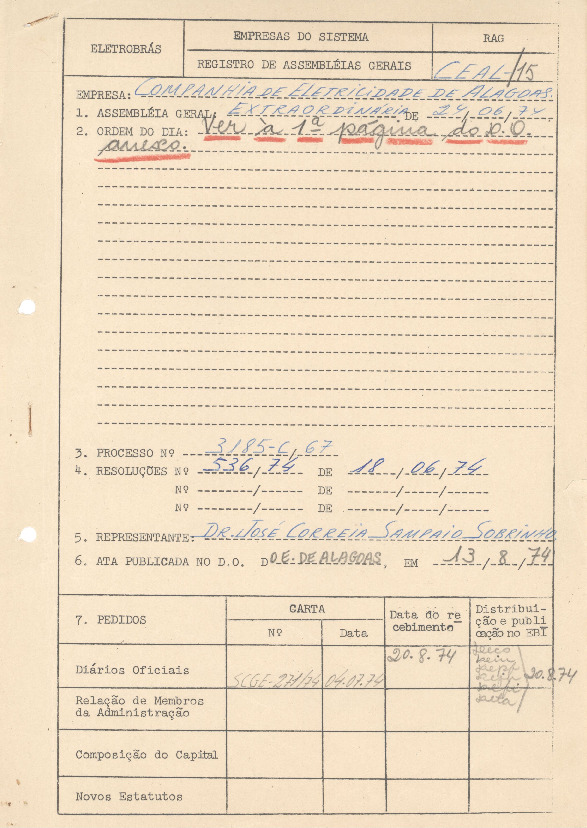 ELETROBRÁS
EMPRESAS DO SISTEMA
RAG
REGISTRO DE ASSEMBLÉIAS GERAIS
CEAL/15
EMPRESA: COMPANHIA DE ELETRICIDADE DE ALAGOAS.
1. ASSEMBLÉIA GERAL EXTRAORDINÁRIA DE 24/06/74
2. ORDEM DO DIA: Ver à 1ª página do D.O.
anexo.
3. PROCESSO Nº 3185-C/67
4. RESOLUÇÕES Nº 536/74 DE 18/06/74
Nº ------/----- DE -----/-----/-----
Nº ------/----- DE -----/-----/-----
5. REPRESENTANTE: DR. JOSÉ CORREIA SAMPAIO SOBRINHO
6. ATA PUBLICADA NO D.O. D.O.E. DE ALAGOAS, EM 13/8/74
7. PEDIDOS
CARTA
Nº
Data
Data do re
cebimento
Distribui-
ção e publi
cação no EBI
Diários Oficiais
SCGE-271/74
04.07.74
20.8.74
20.8.74
Relação de Membros
da Administração
Composição do Capital
Novos Estatutos